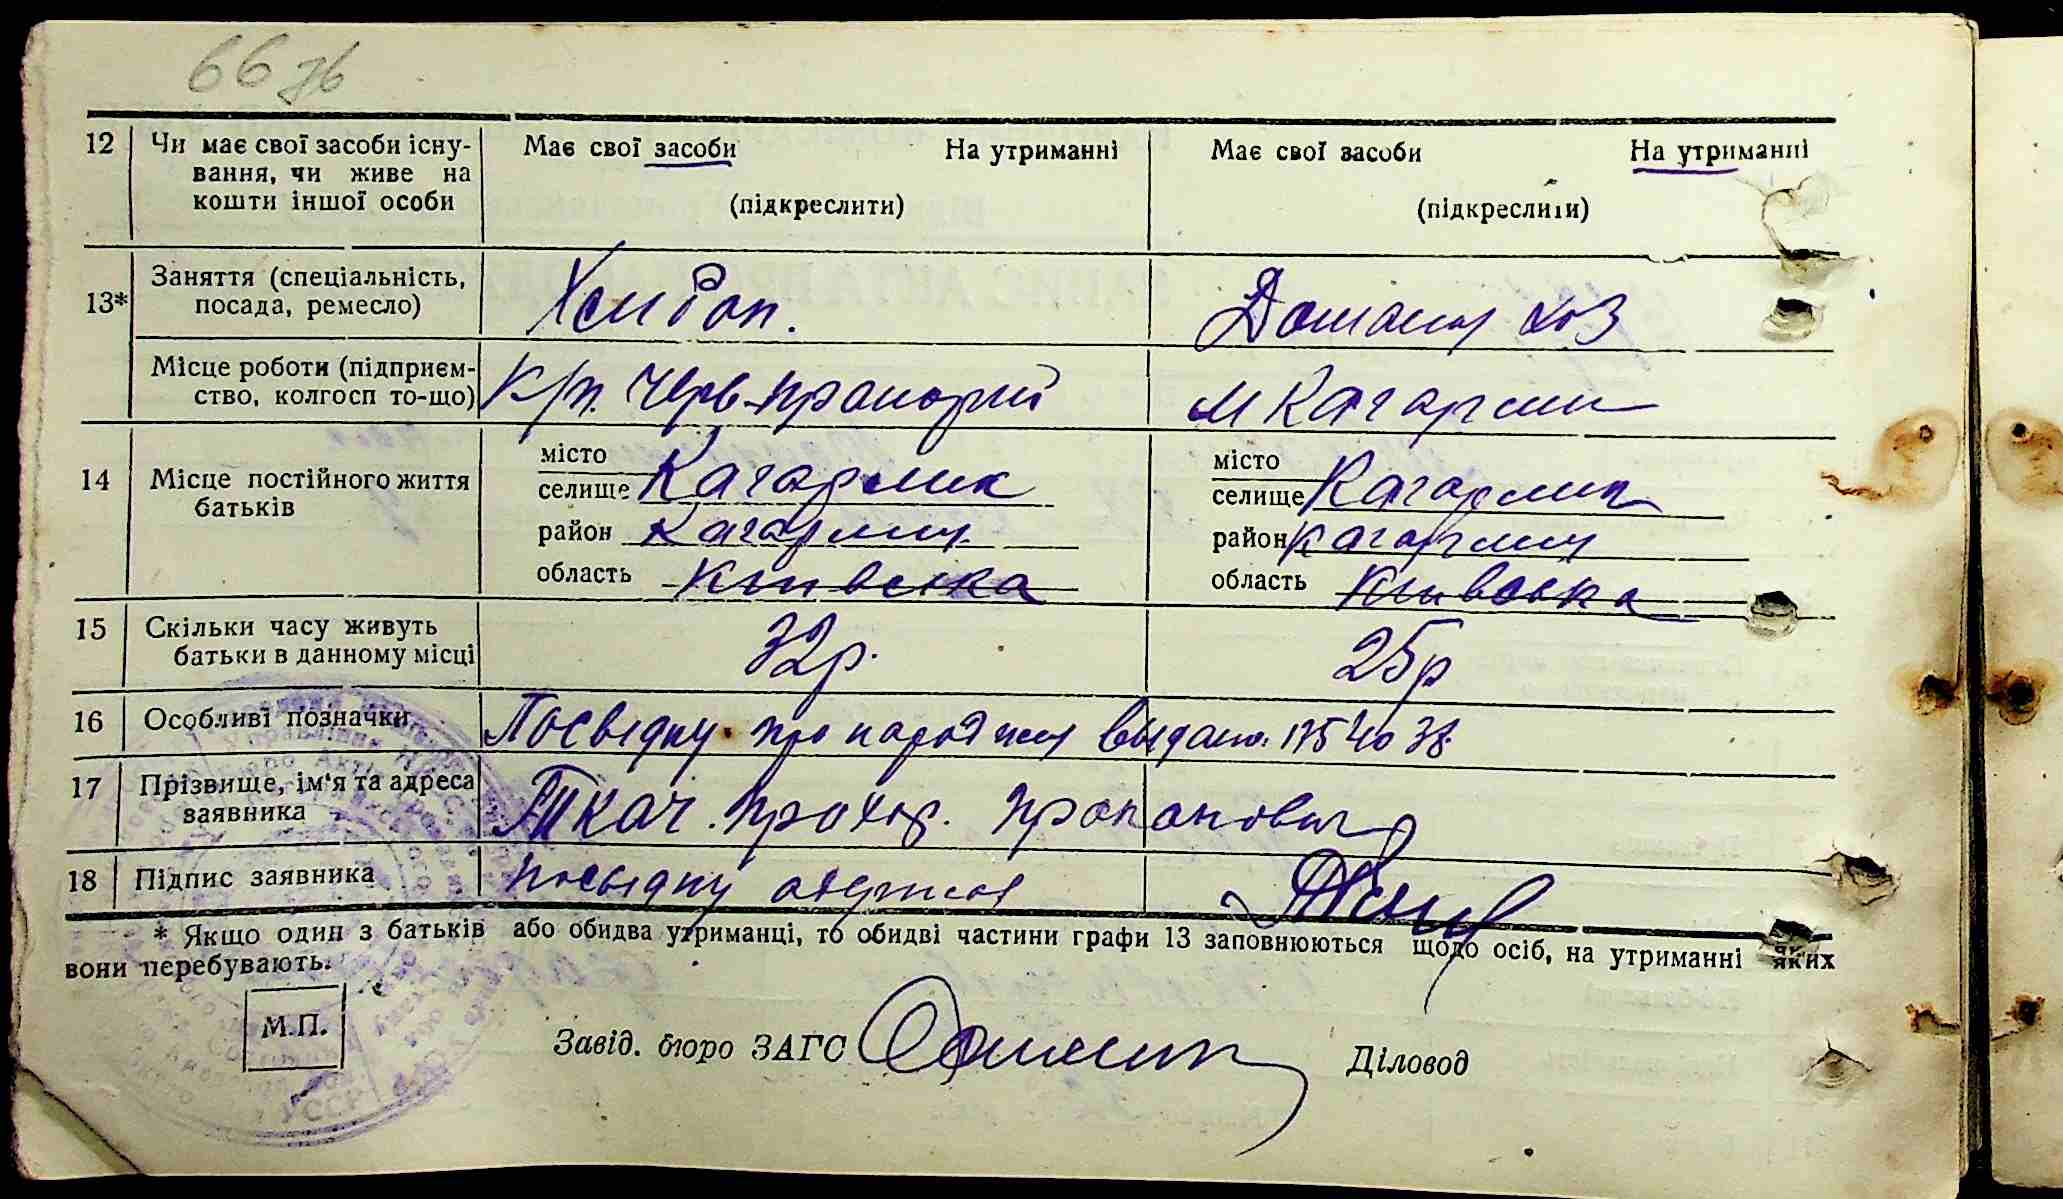 66 зв
12 Чи має свої засоби існу- Має свої засоби На утриманні Має свої засоби На утриманні
вання, чи живе на
кошти іншої особи (підкреслити) (підкреслити)
13* Заняття (спеціальність,
посада, ремесло) Домаш хоз
Місце роботи (підприєм- К/г. Черв. прапорий м Кагарлик
ство, колгосп то-що)
14 Місце постійного життя місто Кагарлик місто Кагарлик
батьків селище селище
район Кагарлиц. район Кагарлиц
область Київська область Київська
15 Скільки часу живуть 32р. 25р
батьки в данному місці
16 Особливі позначки Посвідку про народжен видано
17 Прізвище, ім'я та адреса Ткач. Прохор.
заявника
18 Підпис заявника посвідку одержав
* Якщо один з батьків або обидва утриманці, то обидві частини графи 13 заповнюються щодо осіб, на утриманні яких
вони перебувають.
М.П.
Завід. бюро ЗАГС Діловод